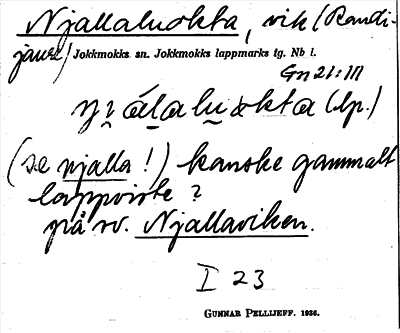 Njallaluokta, vik (Randi-
jaure) Jokkmokks sn. Jokkmokks lappmarks tg. Nb l.
Gn 21:111
(lp.)
(se njalla!) kanske gammalt
lappviste?
på sv. Njallaviken.
I 23
GUNNAR PELLIJEFF. 1936.